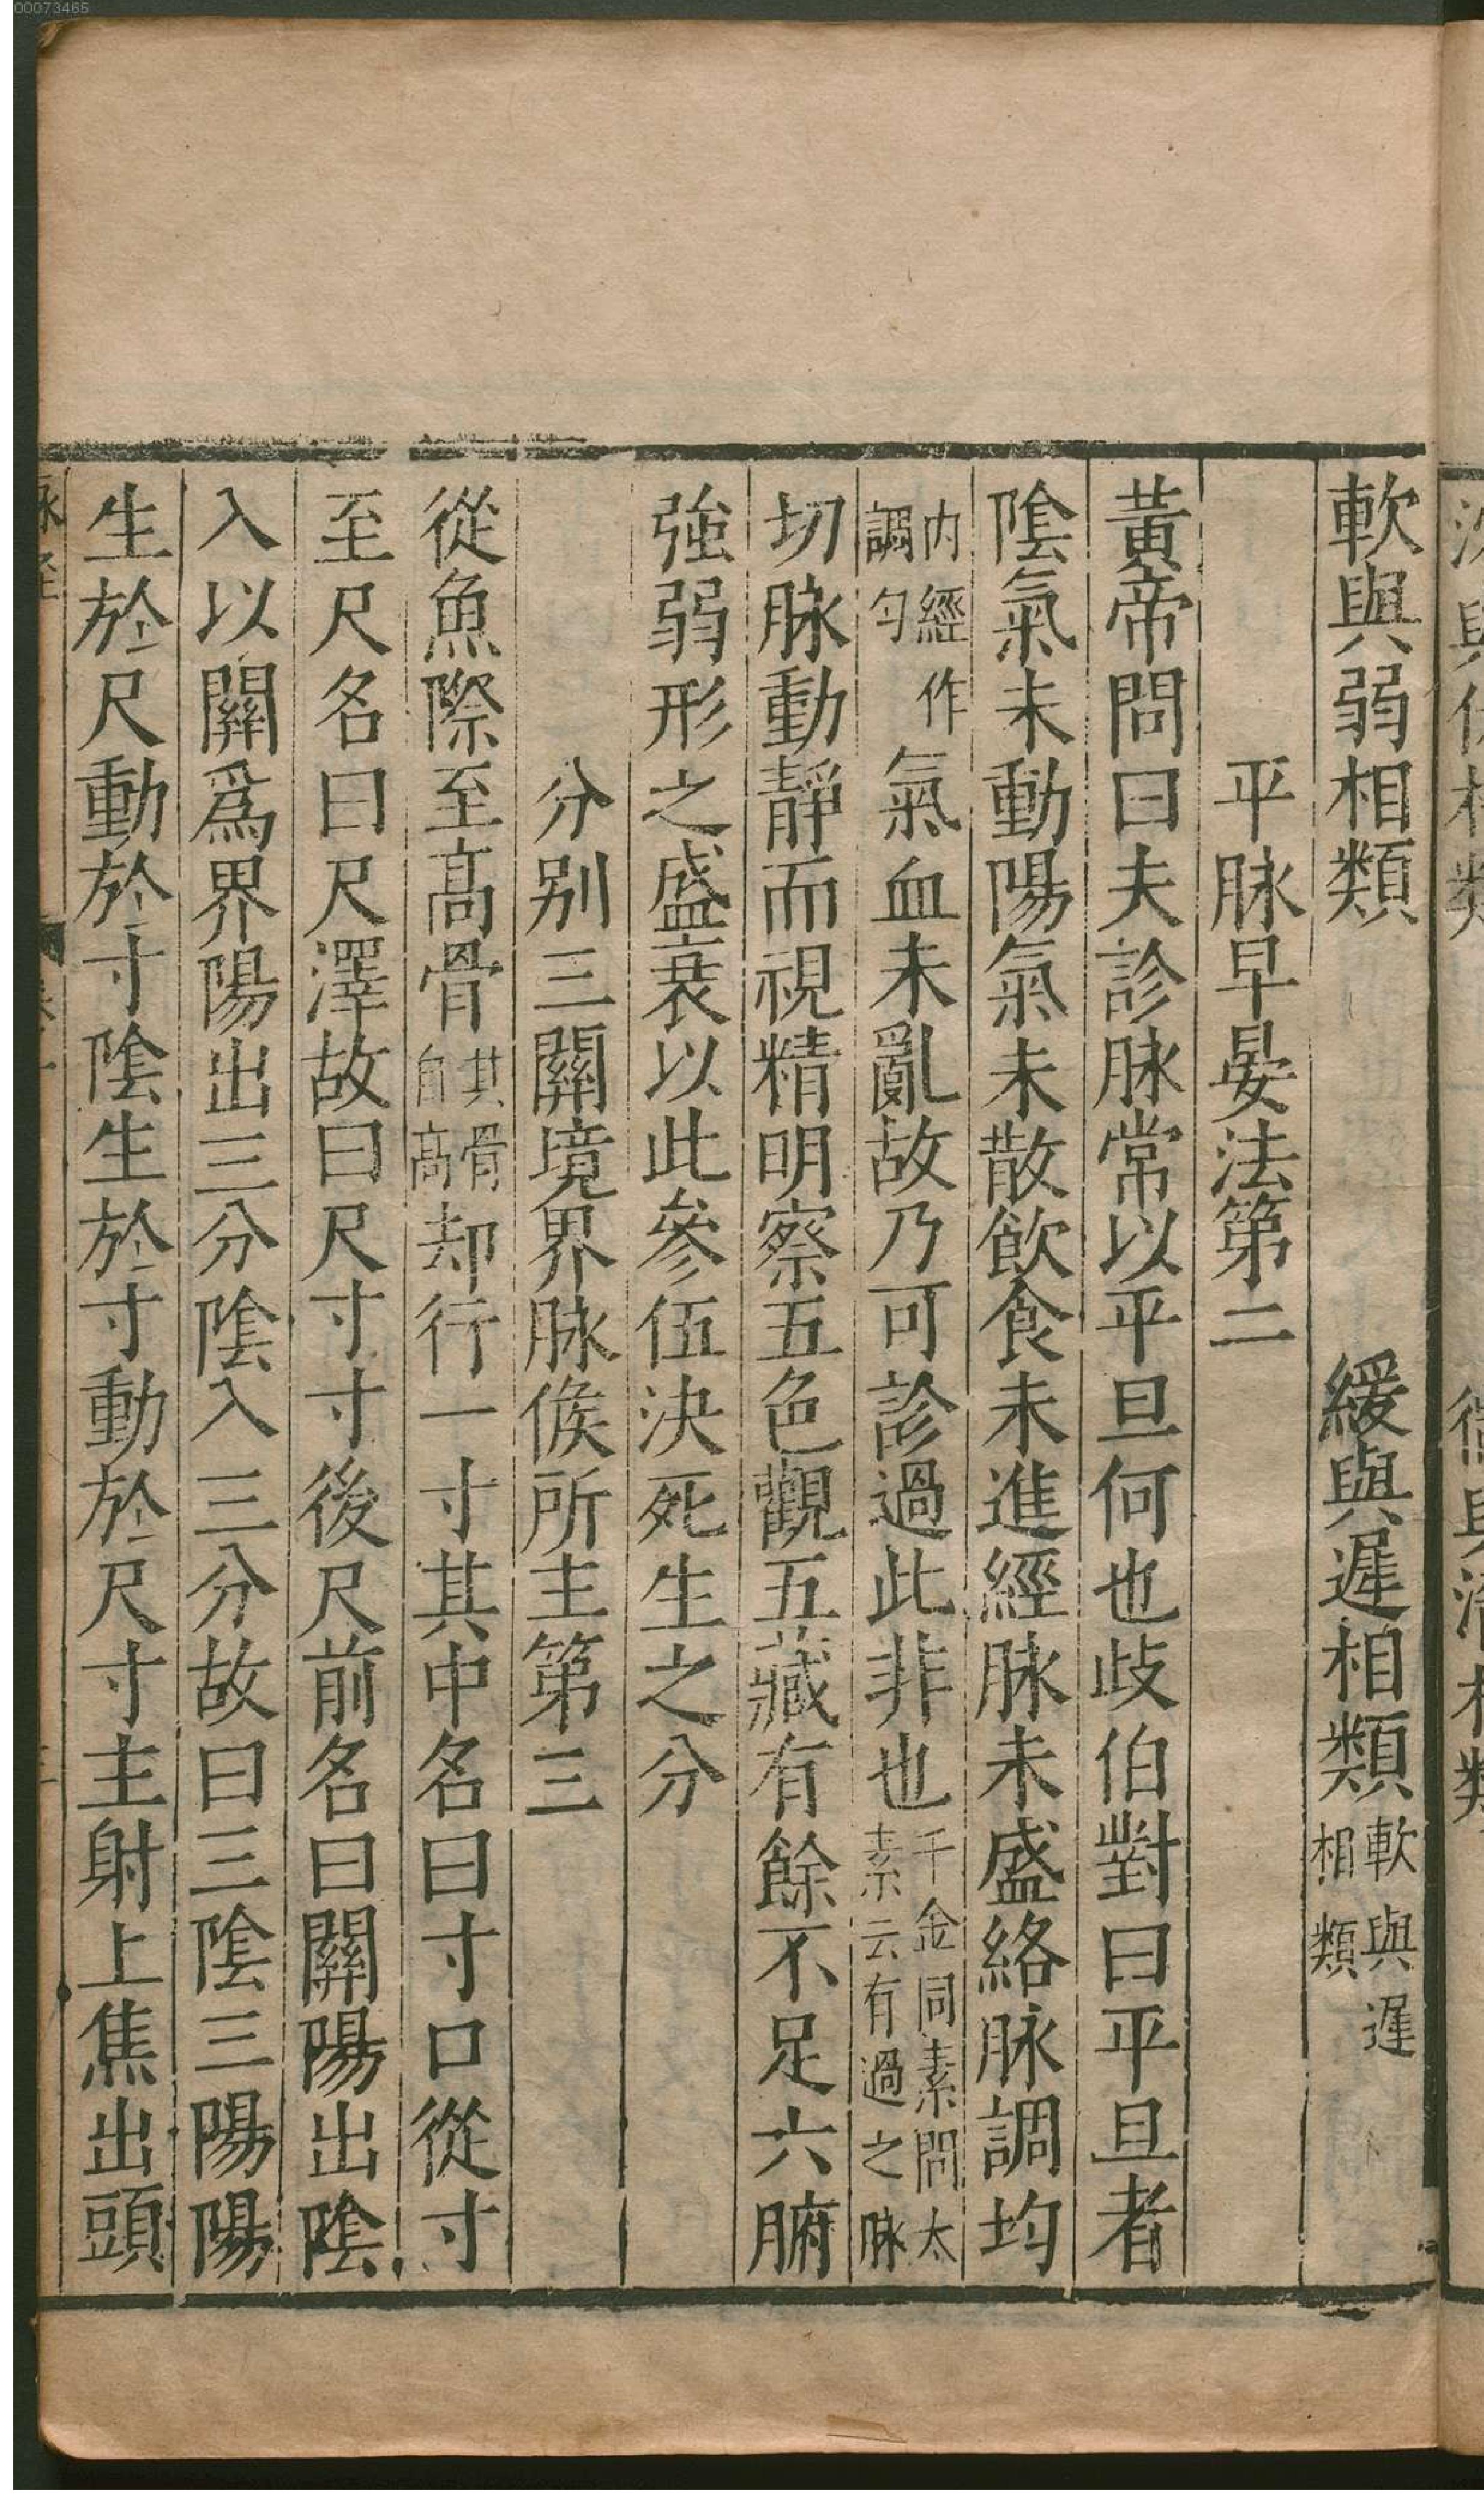 軟與弱相類　緩與遲相類軟與遲相類
平脉早晏法第二
黃帝問曰夫診脉常以平旦何也歧伯對曰平旦者
陰氣未動陽氣未散飲食未進經脉未盛絡脉調均
內經作調勻氣血未亂故乃可診過此非也千金同素問太素云有過之脉
切脉動靜而視精明察五色觀五藏有餘不足六腑
強弱形之盛衰以此參伍決死生之分
分別三關境界脉候所主第三
從魚際至高骨其骨自高却行一寸其中名曰寸口從寸
至尺名曰尺澤故曰尺寸寸後尺前名曰關陽出陰
入以關爲界陽出三分陰入三分故曰三陰三陽陽
生於尺動於寸陰生於寸動於尺寸主射上焦出頭
00073465